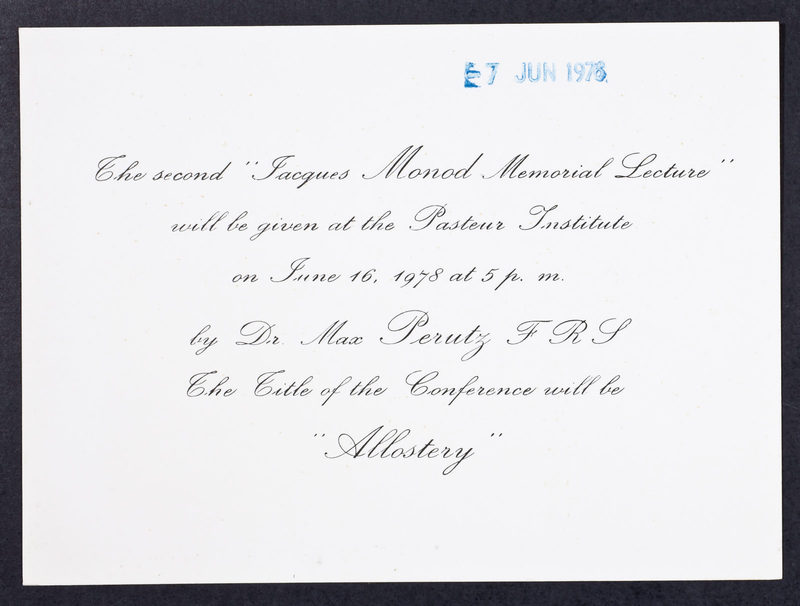 7 JUN 1978
The second "Jacques Monod Memorial Lecture"
will be given at the Pasteur Institute
on June 16, 1978 at 5 p. m.
by Dr. Max Perutz F R S
The Title of the Conference will be
"Allostery"